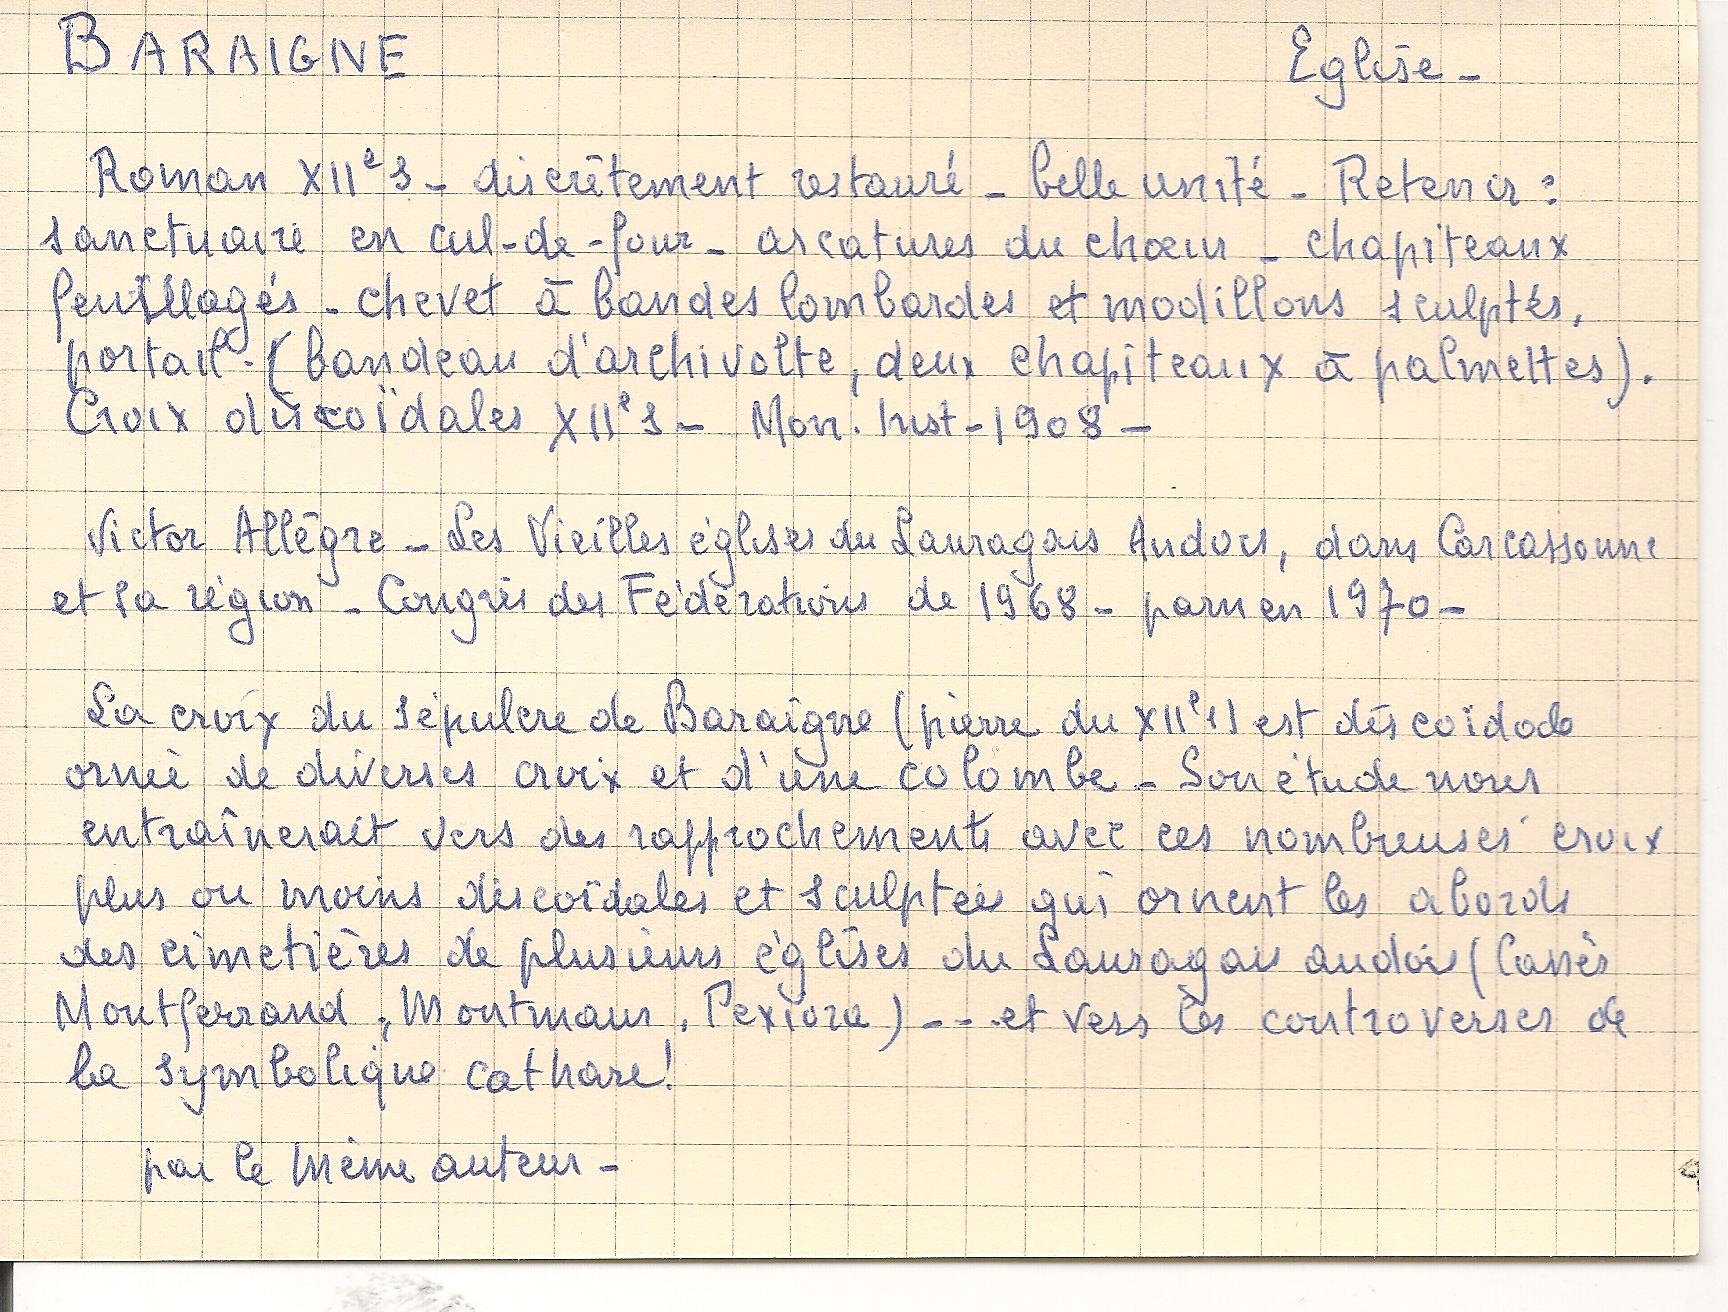 BARAIGNE Eglise -
Roman XIIe s - discrètement restauré - belle unité - Retenir :
sanctuaire en cul-de-four - arcatures du chœur - chapiteaux
feuillagés - chevet à bandes lombardes et modillons sculptés,
portail - ( bandeau d'archivolte, deux chapiteaux à palmettes).
Croix discoïdales XIIe s - Mon. hist - 1908 -
Victor Allègre - Les Vieilles églises du Lauragais Audois, dans Carcassonne
et sa région - Congrès des Fédérations de 1968 - paru en 1970 -
La croix du sépulcre de Baraigne (pierre du XIIe s) est discoïdale
ornée de diverses croix et d'une colombe - Son étude nous
entraînerait vers des rapprochements avec ces nombreuses croix
plus ou moins discoïdales et sculptées qui ornent les abords
des cimetières de plusieurs églises du Lauragais audois (Cassès
Montferrand, Montmaur, Pexiora) --- et vers les controverses de
la symbolique cathare!
par le même auteur -